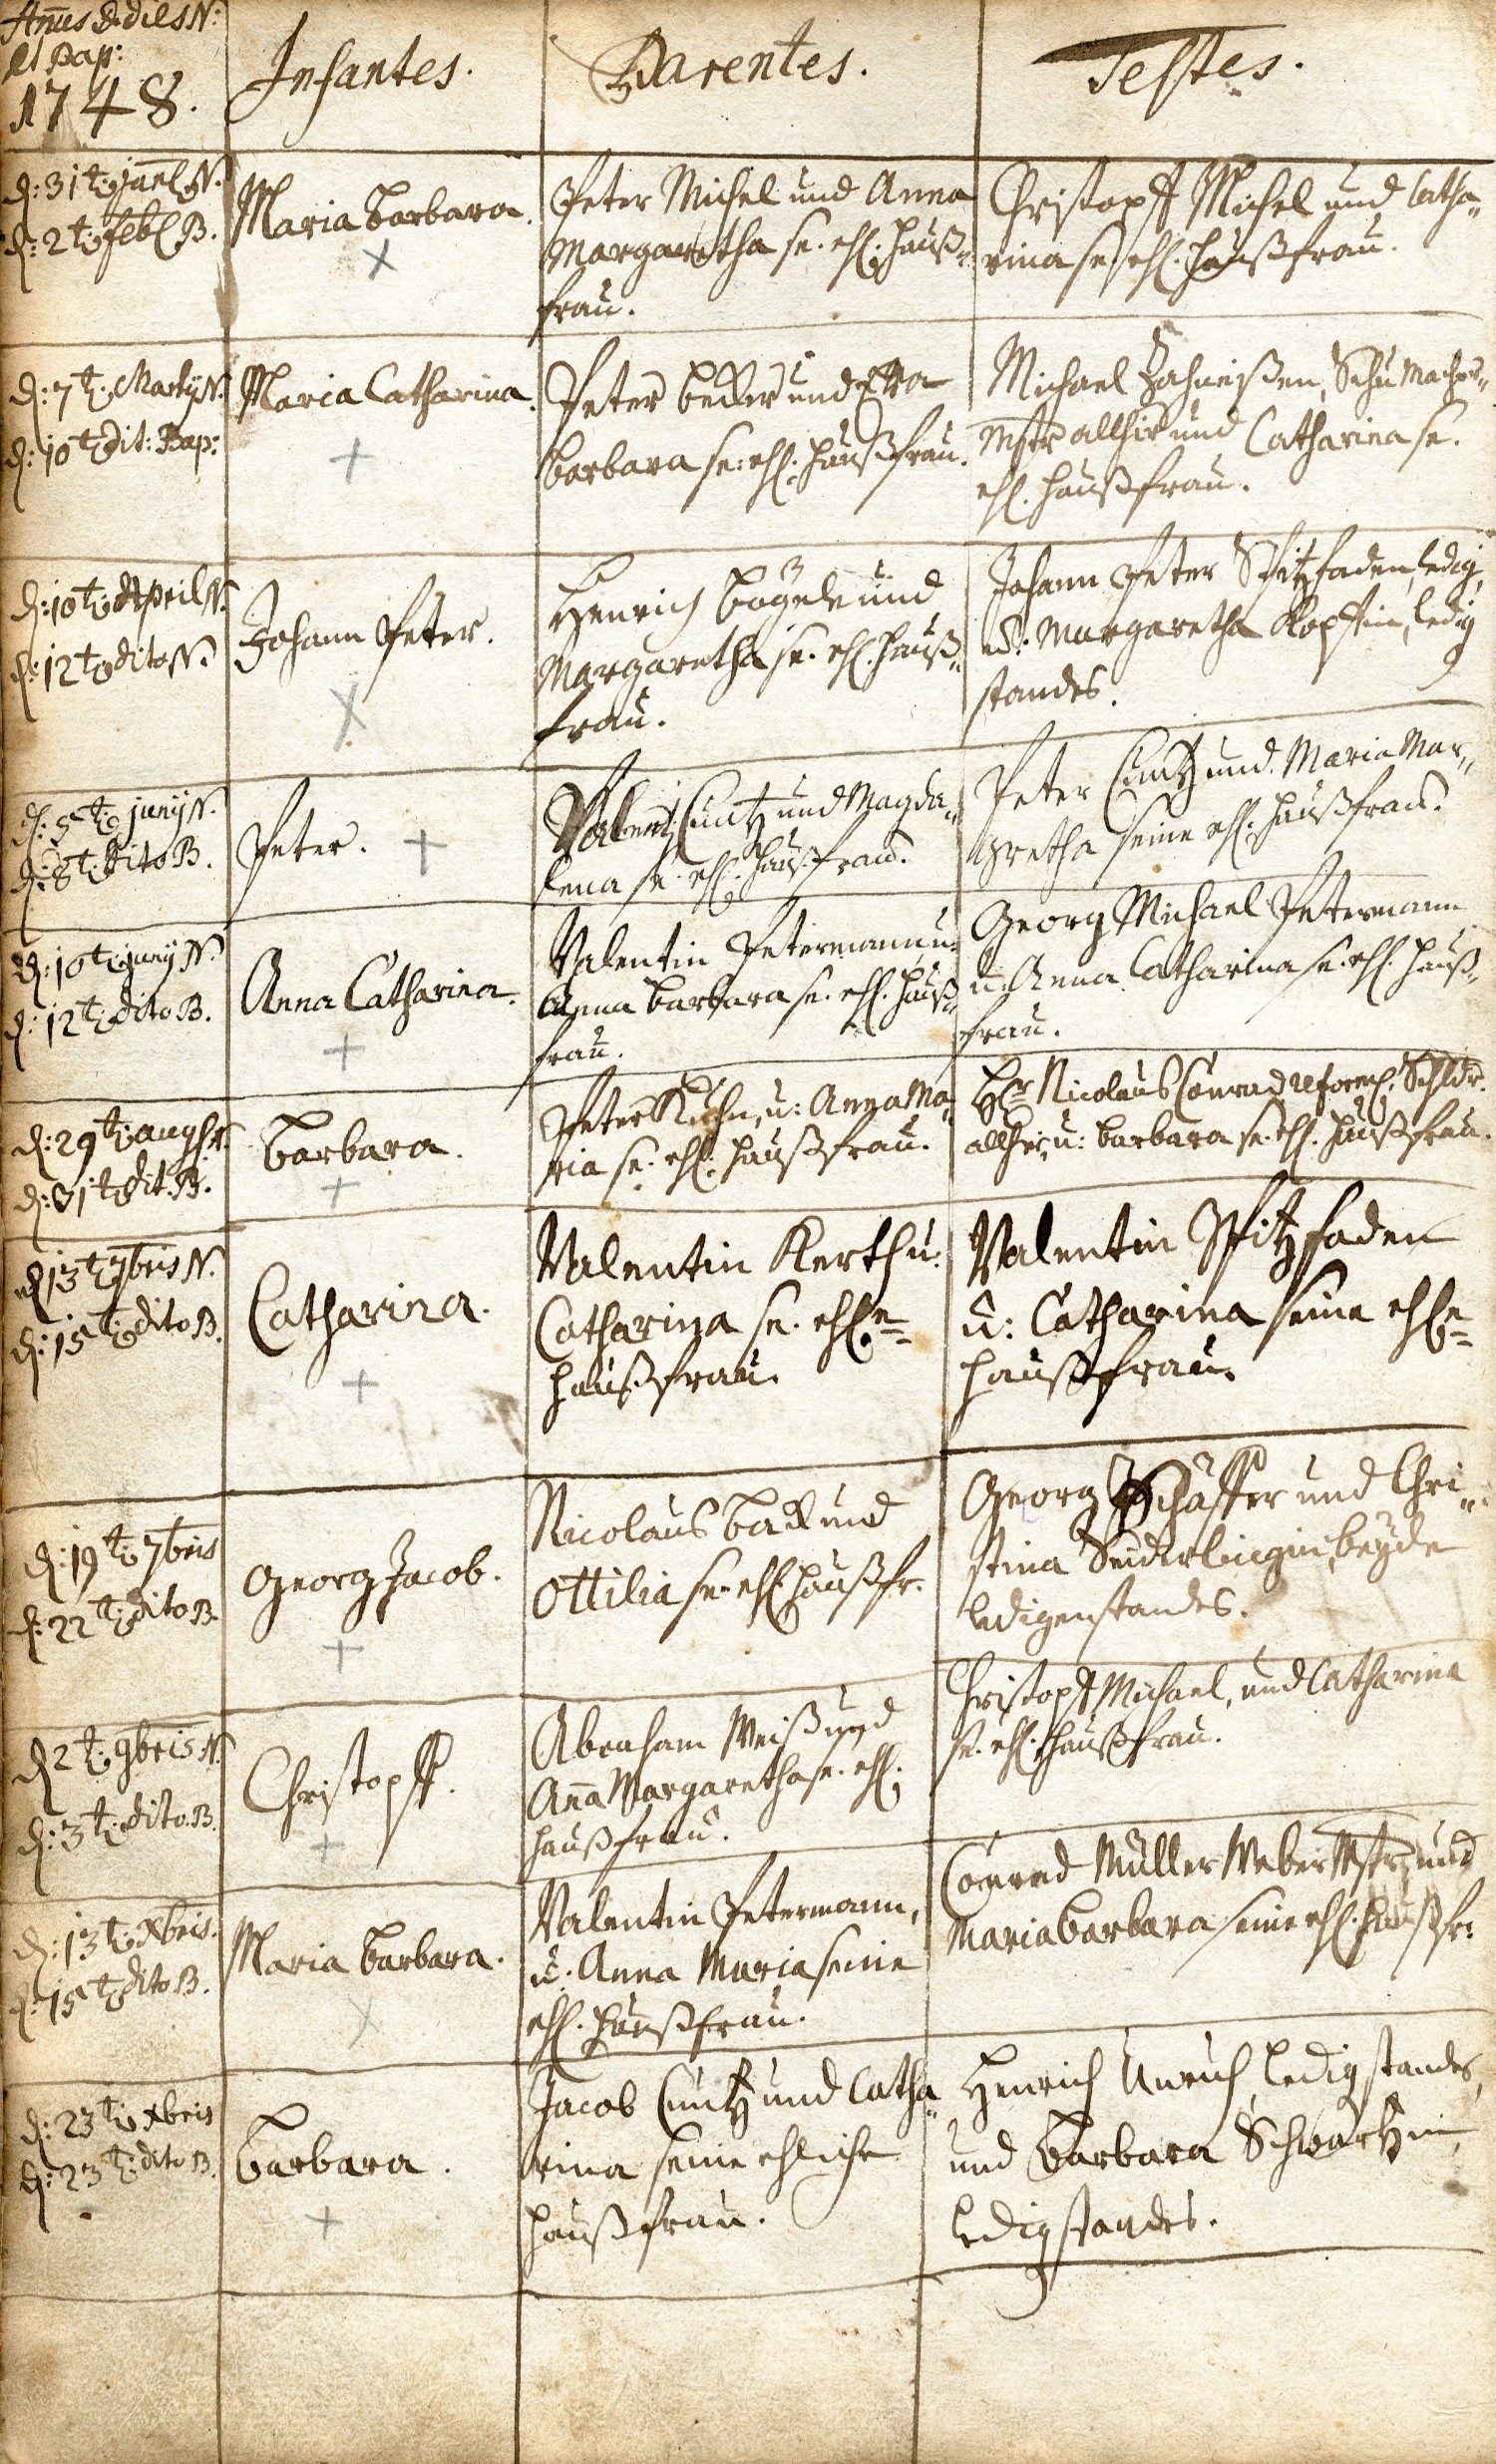 Annus & dies N:
et Bap:
1748.
Infantes.
Parentes.
Testes.
d: 31t: jan[...] N.
d: 2t: feb[...] B.
Maria Barbara.
Peter Michel und Anna
Margaretha se. ehl. Hauß-
frau.
Christoph Michel und Catha-
rina se. ehl. Haußfrau.
d: 7t: Martij N.
d: 10t dit: Bap:
Maria Catharina.
Peter Becker und Eva
Barbara se: ehl. Haußfrau.
Michael Schumacher-
Mstr allhier und Catharina se.
ehl. Haußfrau.
d: 10t: April N.
d: 12t: dito N.
Johann Peter.
Henrich Bögele und
Margaretha se. ehl. Hauß-
frau.
Johann Peter Spitzfaden, ledig,
et. Margaretha Kopffin, ledig
standes.
d: 5t: junij N.
d: 8t: dito B.
Peter.
Valent: Cuntz und Magda-
lena se. ehl. Haußfrau.
Peter Cuntz und Maria Mar-
gretha seine ehl. Haußfrau.
d: 10t: junij N.
d: 12t: dito B.
Anna Catharina.
Valentin Petermann u:
Anna Barbara se. ehl. Hauß-
frau.
Georg Michael Petermann
u. Anna Catharina se. ehl. Hauß-
frau.
d: 29t: aug[...] N.
d: 31t dit. B.
Barbara.
Peter Kuhn, u: Anna Ma-
ria se. ehl. Haußfrau.
Hr Nicolaus Conrad reform. Schldr.
allhier, u: Barbara se. ehl. Haußfrau.
d 13t 7bris N.
d: 15t: dito B.
Catharina.
Valentin Kerth u.
Catharina se. ehle-
Haußfrau.
Valentin Spitzfaden
u: Catharina seine ehle-
Haußfrau.
d: 19t: 7bris
d: 22t: dito B.
Georg Jacob.
Nicolaus Back und
Ottilia se. ehl. Haußfr.
Georg Schäffer und Chri-
stina beyde
ledigenstandes.
d 2t: 9bris N.
d: 3t: dito. B.
Christoph.
Abraham Weiß und
Anna Margaretha se. ehl.
Haußfrau.
Christoph Michael, und Catharina
se. ehl. Haußfrau.
d: 13t: Xbris.
d: 15t: dito B.
Maria Barbara.
Valentin Petermann,
u. Anna Maria seine
ehl. Haußfrau.
Conrad Müller Weber Mstr, und
Maria Barbara seine ehl. Haußfr:
d: 23t: Xbris
d: 23t: dito B.
Barbara.
Jacob Cuntz und Catha-
rina seine ehliche
Haußfrau.
Henrich Unruh, ledigstandes,
und Barbara Schwartzin,
ledigstandes.